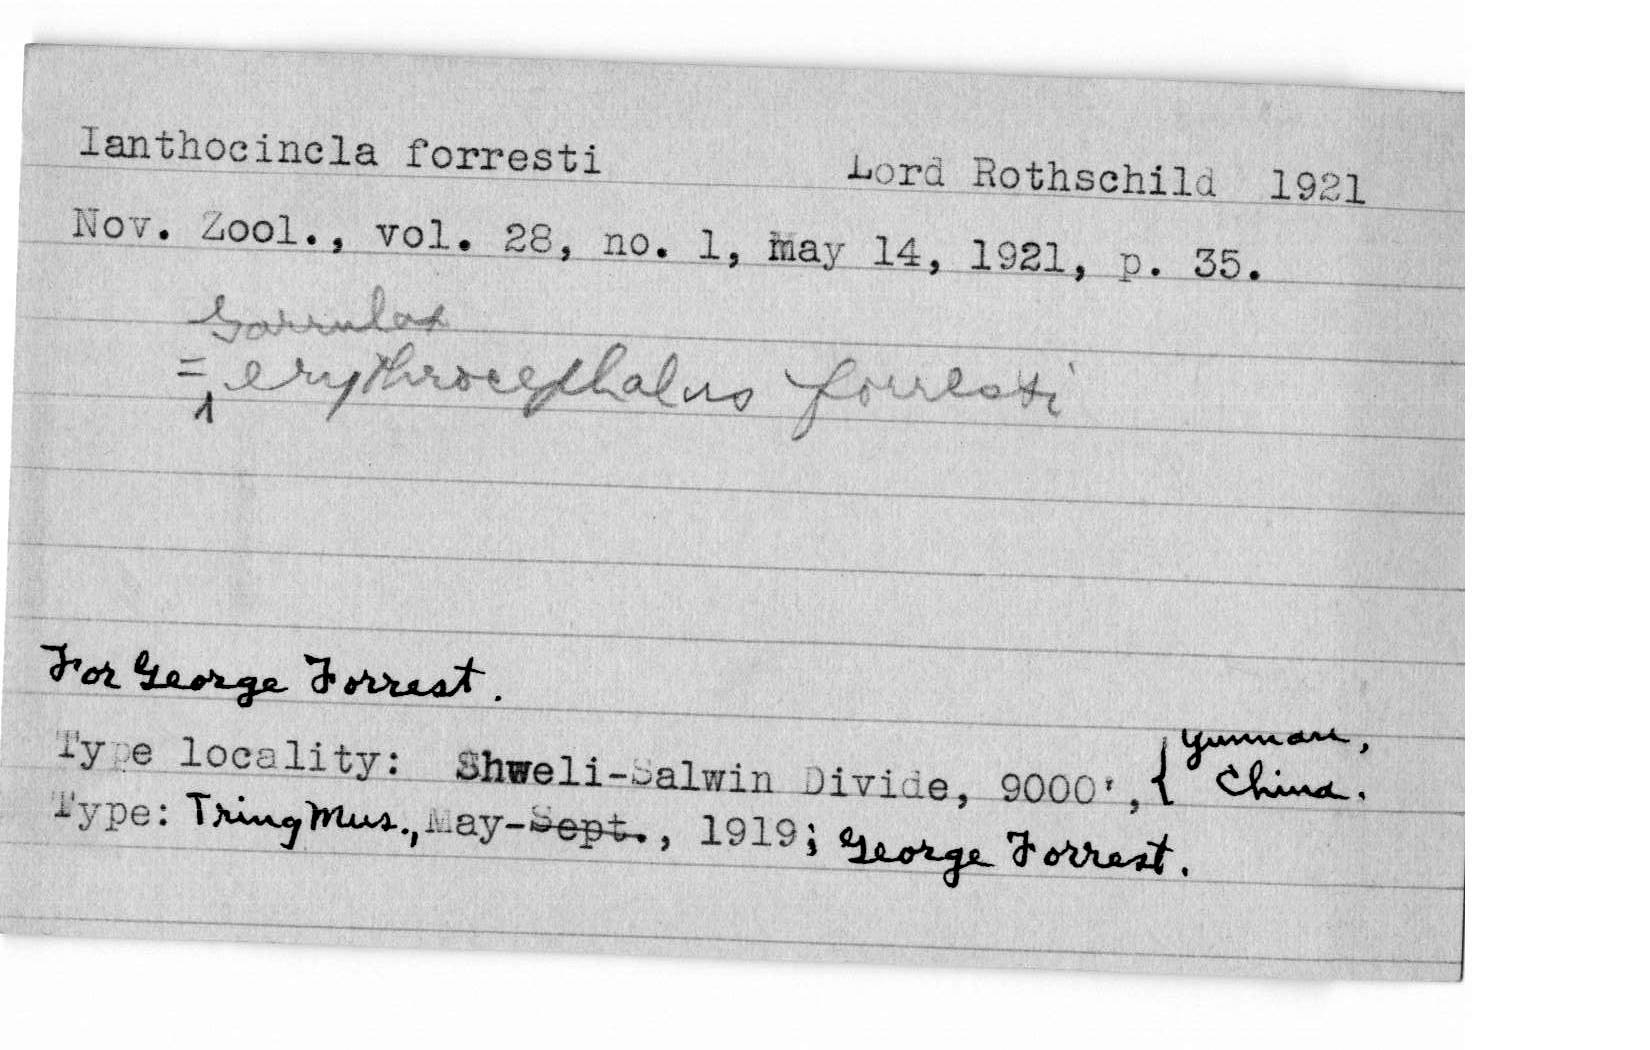 Ianthocincla forresti Lord Rothschild 1921
Nov. Zool., vol. 28, no. 1, May 14, 1921, p. 35.
Garrulax
= erythrocephalus forresti
For George Forrest.
Type locality: Shweli-Salwin Divide, 9000', { Yunnan, China.
Type: Tring Mus., May-Sept., 1919; George Forrest.